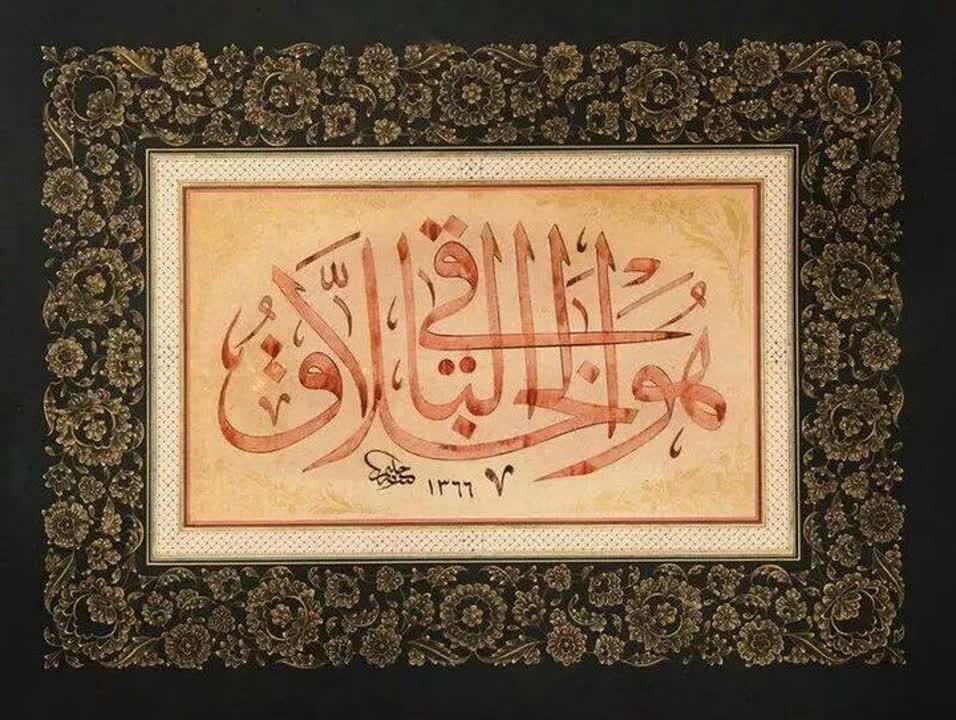 هُوَ الخلَّاقُ الباقي
حليم ١٣٦٦